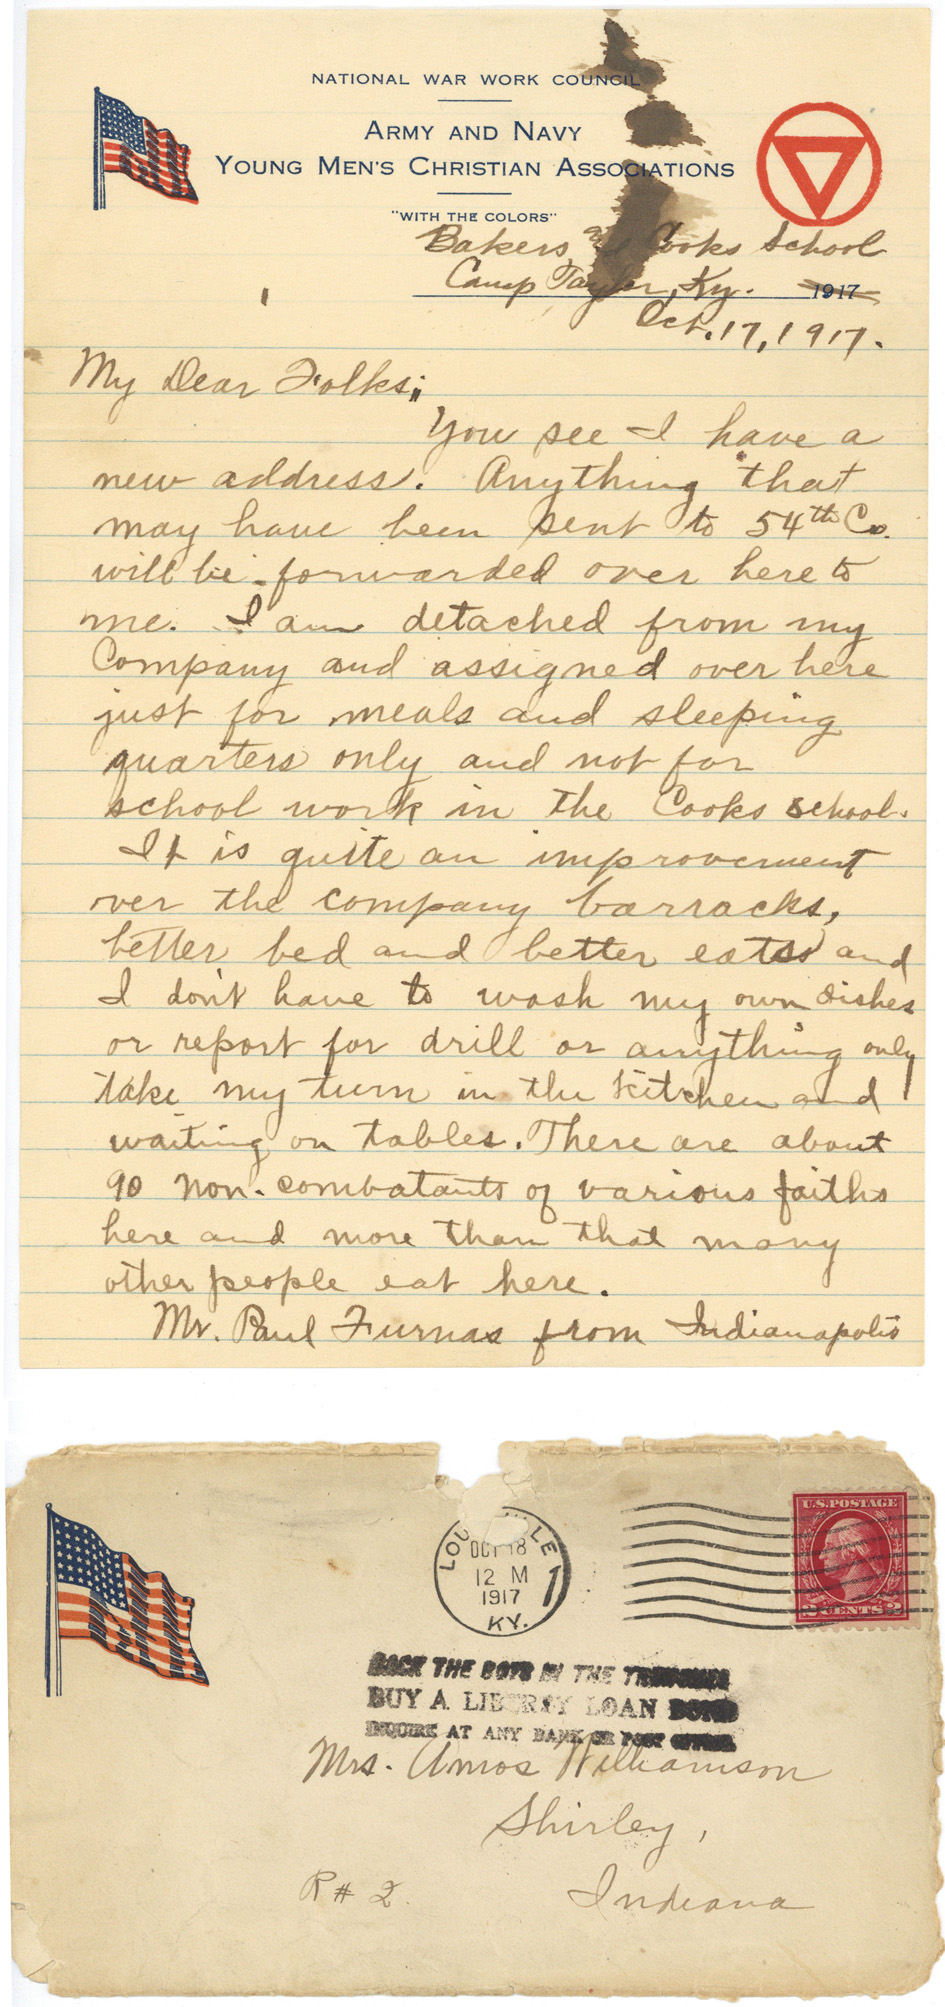 NATIONAL WAR WORK COUNCIL
ARMY AND NAVY
YOUNG MEN'S CHRISTIAN ASSOCIATIONS
"WITH THE COLORS"
Bakers and Cooks School
Camp Taylor, Ky. 1917
Oct. 17, 1917.
My Dear Folks;
You see I have a
new address. Anything that
may have been sent to 54th Co.
will be forwarded over here to
me. I am detached from my
Company and assigned over here
just for meals and sleeping
quarters only and not for
school work in the Cooks school.
It is quite an improvement
over the company barracks,
better bed and better eats and
I don't have to wash my own dishes
or report for drill or anything only
take my turn in the kitchen and
waiting on tables. There are about
90 non-combatants of various faiths
here and more than that many
other people eat here.
Mr. Paul Furnas from Indianapolis
LOUISVILLE
OCT 18
12 M
1917
KY.
1
U.S. POSTAGE
2 CENTS 2
BACK THE BOYS IN THE TRENCHES
BUY A LIBERTY LOAN BOND
INQUIRE AT ANY BANK OR POST OFFICE
Mrs. Amos Williamson
Shirley,
R#2. Indiana